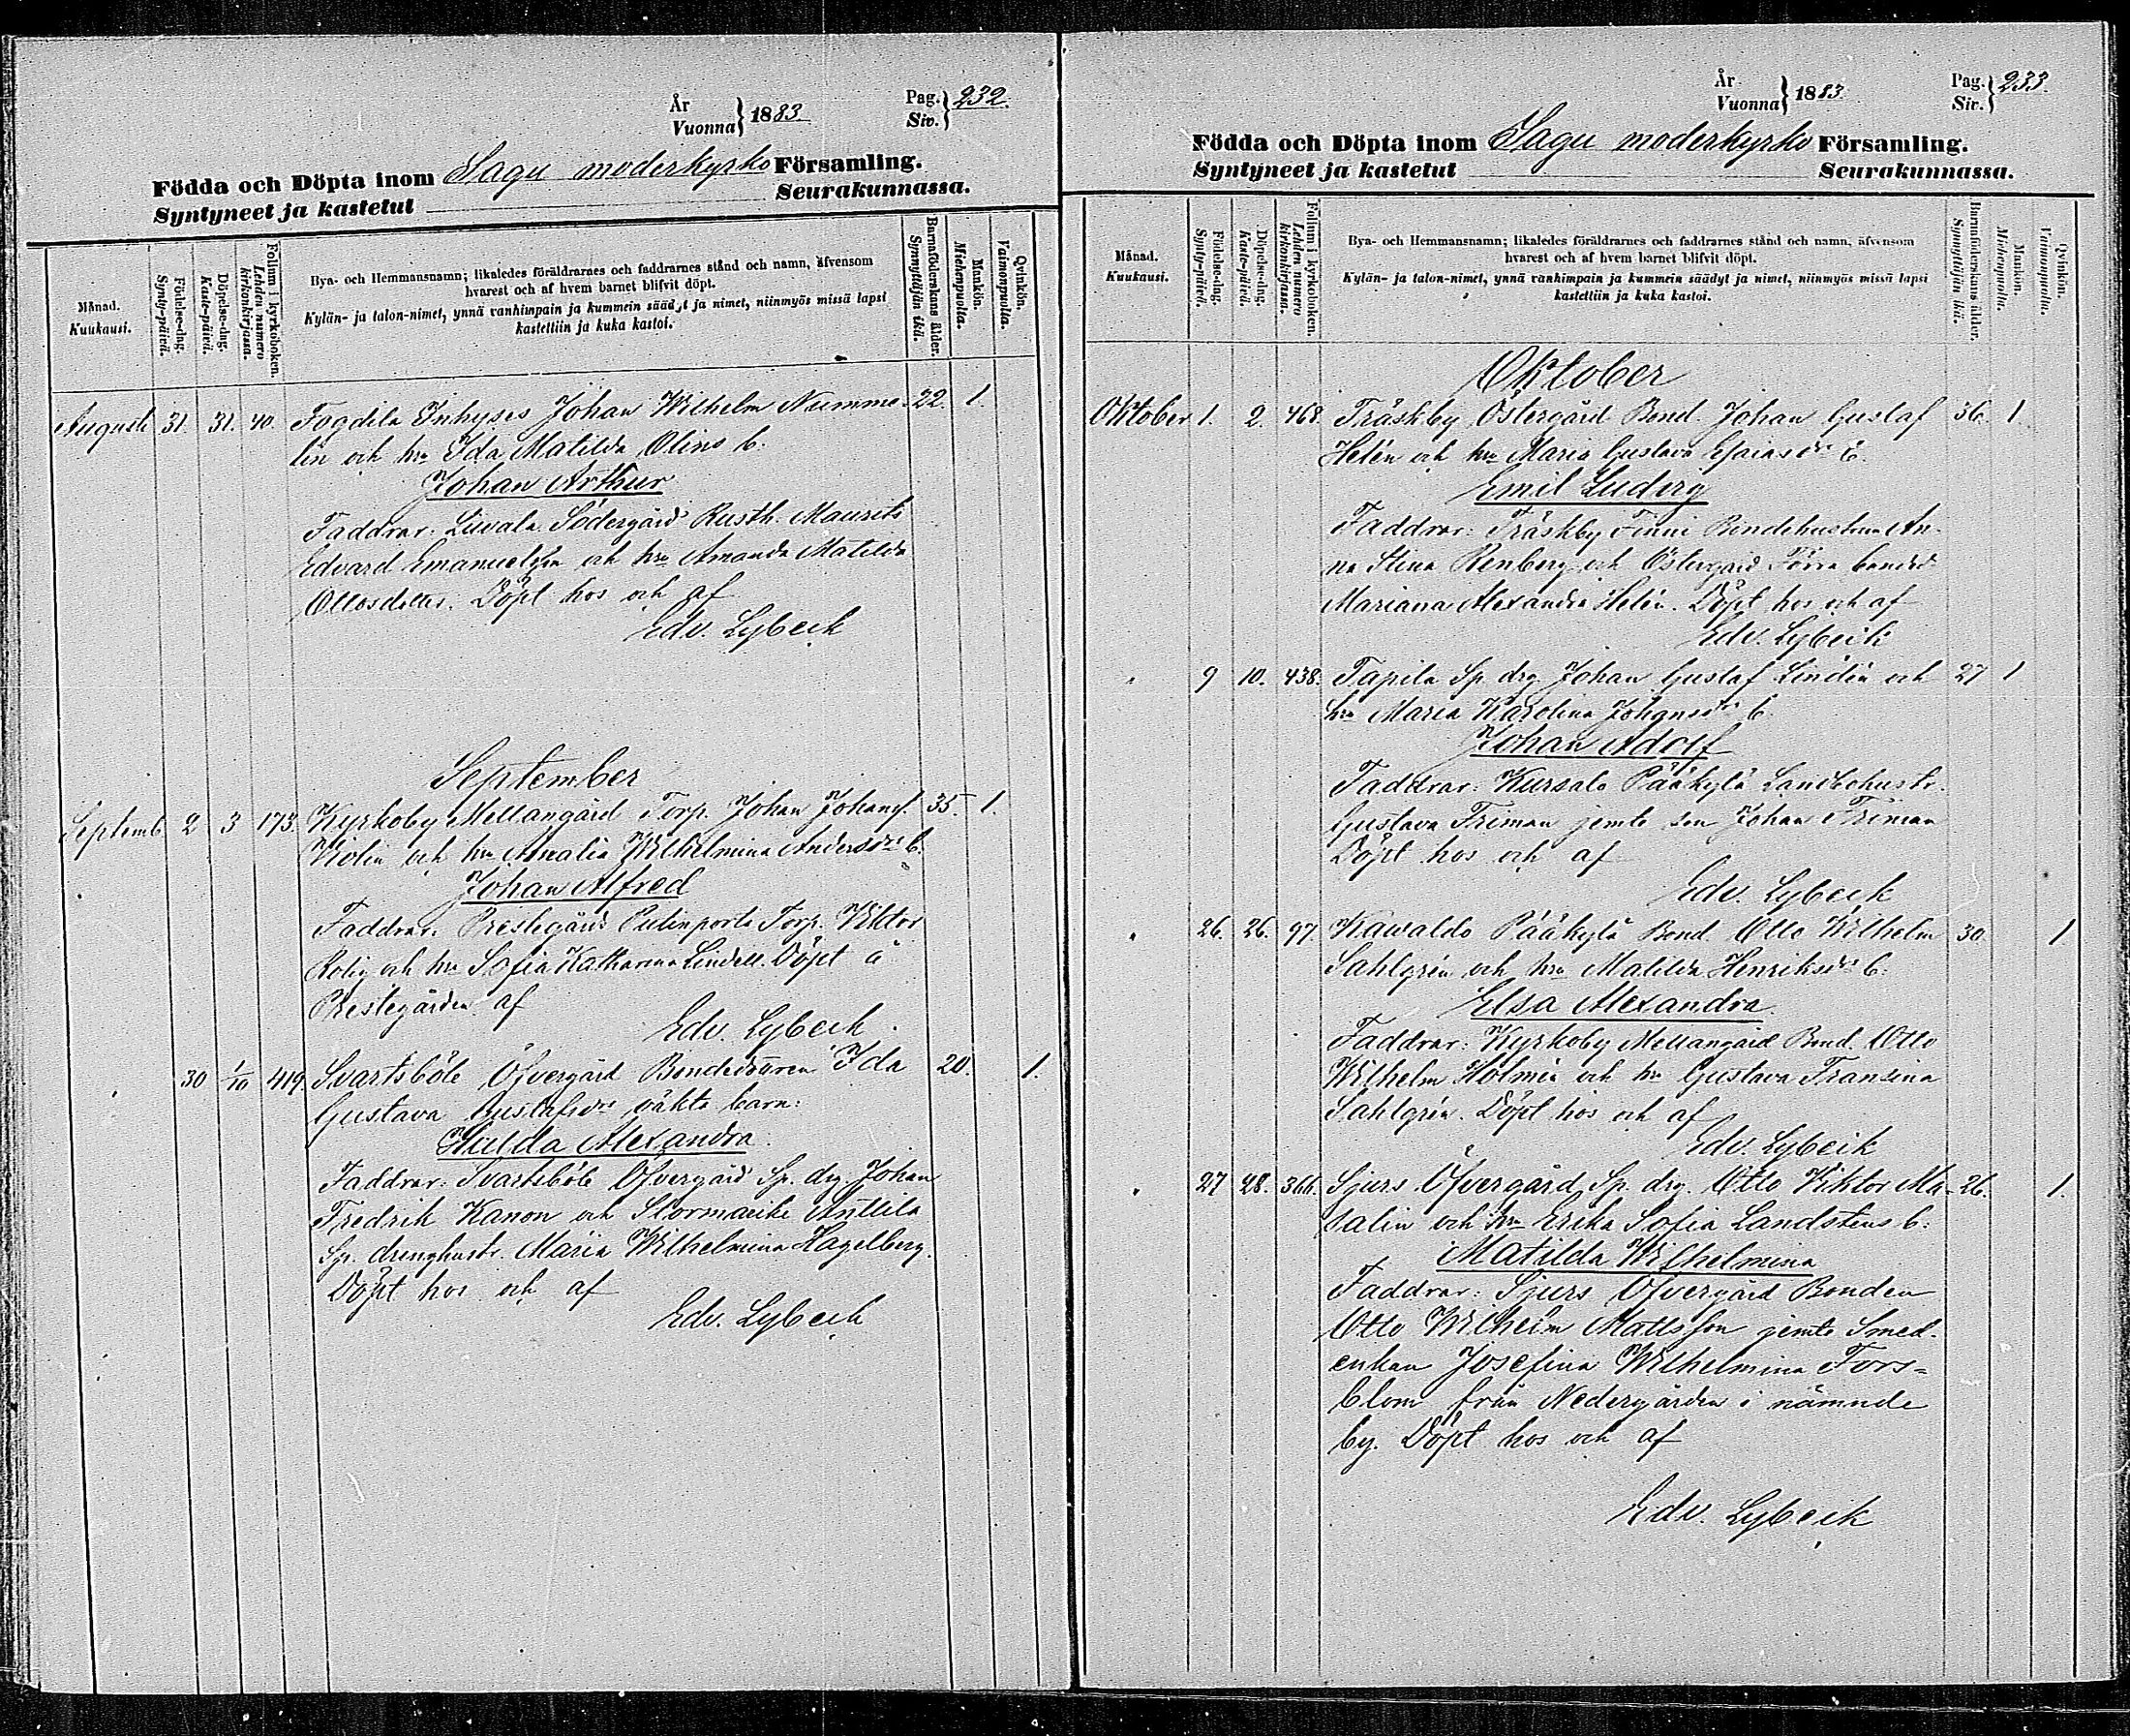 År
Vuonna } 1883.
Pag.
Siv. } 232.
Födda och Döpta inom Sagu moderkyrko Församling.
Syntyneet ja kastetut Seurakunnassa.
Månad.
Kuukausi.
Födelse-dag.
Synty-päivä.
Döpelse-dag.
Kaste-päivä.
Folium i kyrkoboken.
Lehden numero kirkonkirjassa.
Bya- och Hemmansnamn; likaledes föräldrarnes och faddrarnes stånd och namn, äfvensom
hvarest och af hvem barnet blifvit döpt.
Kylän- ja talon-nimet, ynnä vanhimpain ja kummein säädyt ja nimet, niinmyös missä lapsi
kastettiin ja kuka kastoi.
Barnaföderskans ålder.
Synnyttäjän ikä.
Mankön.
Miehenpuolia.
Qvinkön.
Vaimonpuolia.
Augusti 31. 31. 40. Fogdila Inhyses Johan Wilhelm Numme- 22. 1.
lin och hu Ida Matilda Olins b.
Johan Arthur
Faddrar: Liivala Södergård Rusth. Maurits
Edvard Emanuelsson och hu Amanda Matilda
Ottosdotter. Döpt hos och af
Edv. Lybeck
September
Septemb. 2 3 173. Kyrkoby Mellangård Torp. Johan Johansf. 35. 1.
Violin och hu Amalia Wilhelmina Andersdr b.
Johan Alfred
Faddrar: Prestegård Torp. Viktor
Rolig och hu Sofia Katharina Lindell. Döpt å
Prestegården af
Edv. Lybeck
30 1/10 419. Svartsböle Öfvergård Bondedottren Ida 20. 1.
Gustava Gustafsdrs oäkta barn:
Hulda Alexandra
Faddrar: Svartsböle Öfvergård Sp. drg. Johan
Fredrik Kanon och Stormaeike Anttila
Sp. drenghustr. Maria Wilhelmina Hagelberg.
Döpt hos och af
Edv. Lybeck
År
Vuonna } 1883.
Pag.
Siv. } 233.
Födda och Döpta inom Sagu moderkyrko Församling.
Syntyneet ja kastetut Seurakunnassa.
Månad.
Kuukausi.
Födelse-dag.
Synty-päivä.
Döpelse-dag.
Kaste-päivä.
Folium i kyrkoboken.
Lehden numero kirkonkirjassa.
Bya- och Hemmansnamn; likaledes föräldrarnes och faddrarnes stånd och namn, äfvensom
hvarest och af hvem barnet blifvit döpt.
Kylän- ja talon-nimet, ynnä vanhimpain ja kummein säädyt ja nimet, niinmyös missä lapsi
kastettiin ja kuka kastoi.
Barnaföderskans ålder.
Synnyttäjän ikä.
Mankön.
Miehenpuolia.
Qvinkön.
Vaimonpuolia.
Oktober
Oktober 1. 2. 468. Träskby Östergård Bond. Johan Gustaf 36. 1.
Helén och hu Maria Gustava Esaiasdr b.
Emil Ludvig
Faddrar: Träskby Finni Bondehustrun An-
na Stina Renberg och Östergård Förra bondd
Mariana Alexandra Helén. Döpt hos och af
Edv. Lybeck
" 9 10. 438. Tapila Sp. drg Johan Gustaf Lindén och 27 1
hu Maria Karolina Johansdr b.
Johan Adolf
Faddrar: Kursalo Pääkylä Landbohustr.
Gustava Friman jemte son Johan Friman
Döpt hos och af
Edv. Lybeck
" 26. 26. 97. Kawaldo Pääkylä Bond. Otto Wilhelm 30 1
Sahlgrén och hu Matilda Henriksdr b.
Elsa Alexandra.
Faddrar: Kyrkoby Mellangård Bond. Otto
Wilhelm Holmén och hu Gustava Fransina
Sahlgrén. Döpt hos och af
Edv. Lybeck
" 27 28. 366. Sjurs Öfvergård Sp. drg. Otto Viktor Ma- 26. 1.
salin och hu Erika Sofia Landstens b:
Matilda Wilhelmina
Faddrar: Sjurs Öfvergård Bonden
Otto Wilhelm Mattsson jemte Smed-
enkan Josefina Wilhelmina Fors-
blom från Nedergården i nämnde
by. Döpt hos och af
Edv. Lybeck